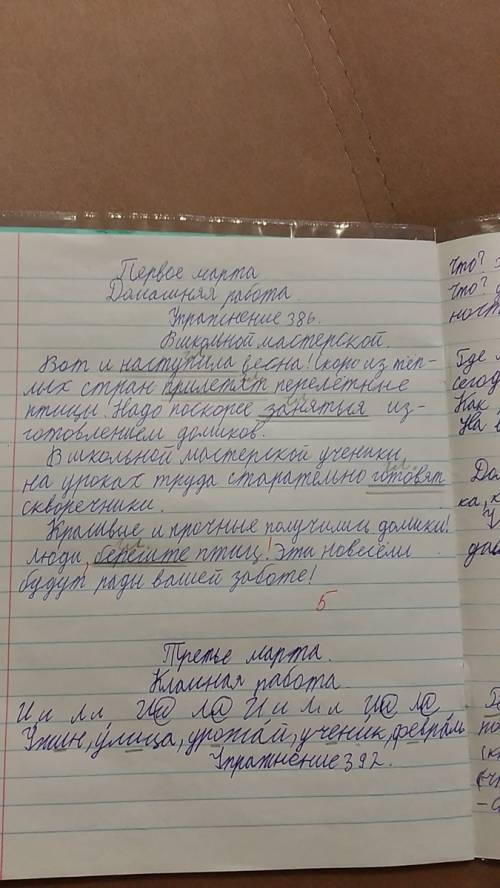 Первое марта
Домашняя работа.
Упражнение 386.
В школьной мастерской.
Вот и наступила весна! Скоро из теп-
лых стран прилетят перелётные
птицы! Надо поскорее заняться из-
готовлением домиков.
В школьной мастерской ученики,
на уроках труда старательно готовят
скворечники.
Красивые и прочные получились домики!
Люди, берегите птиц! Эти новосёлы
будут рады вашей заботе!
5
Третье марта.
Классная работа.
И и л л И@ Л@ И и л л И@ Л@
Ужин, улица, урожай, ученик, февраль
Упражнение 392.
Что?
Что?
ност
Где
сегод
Как
На в
ка,
дав